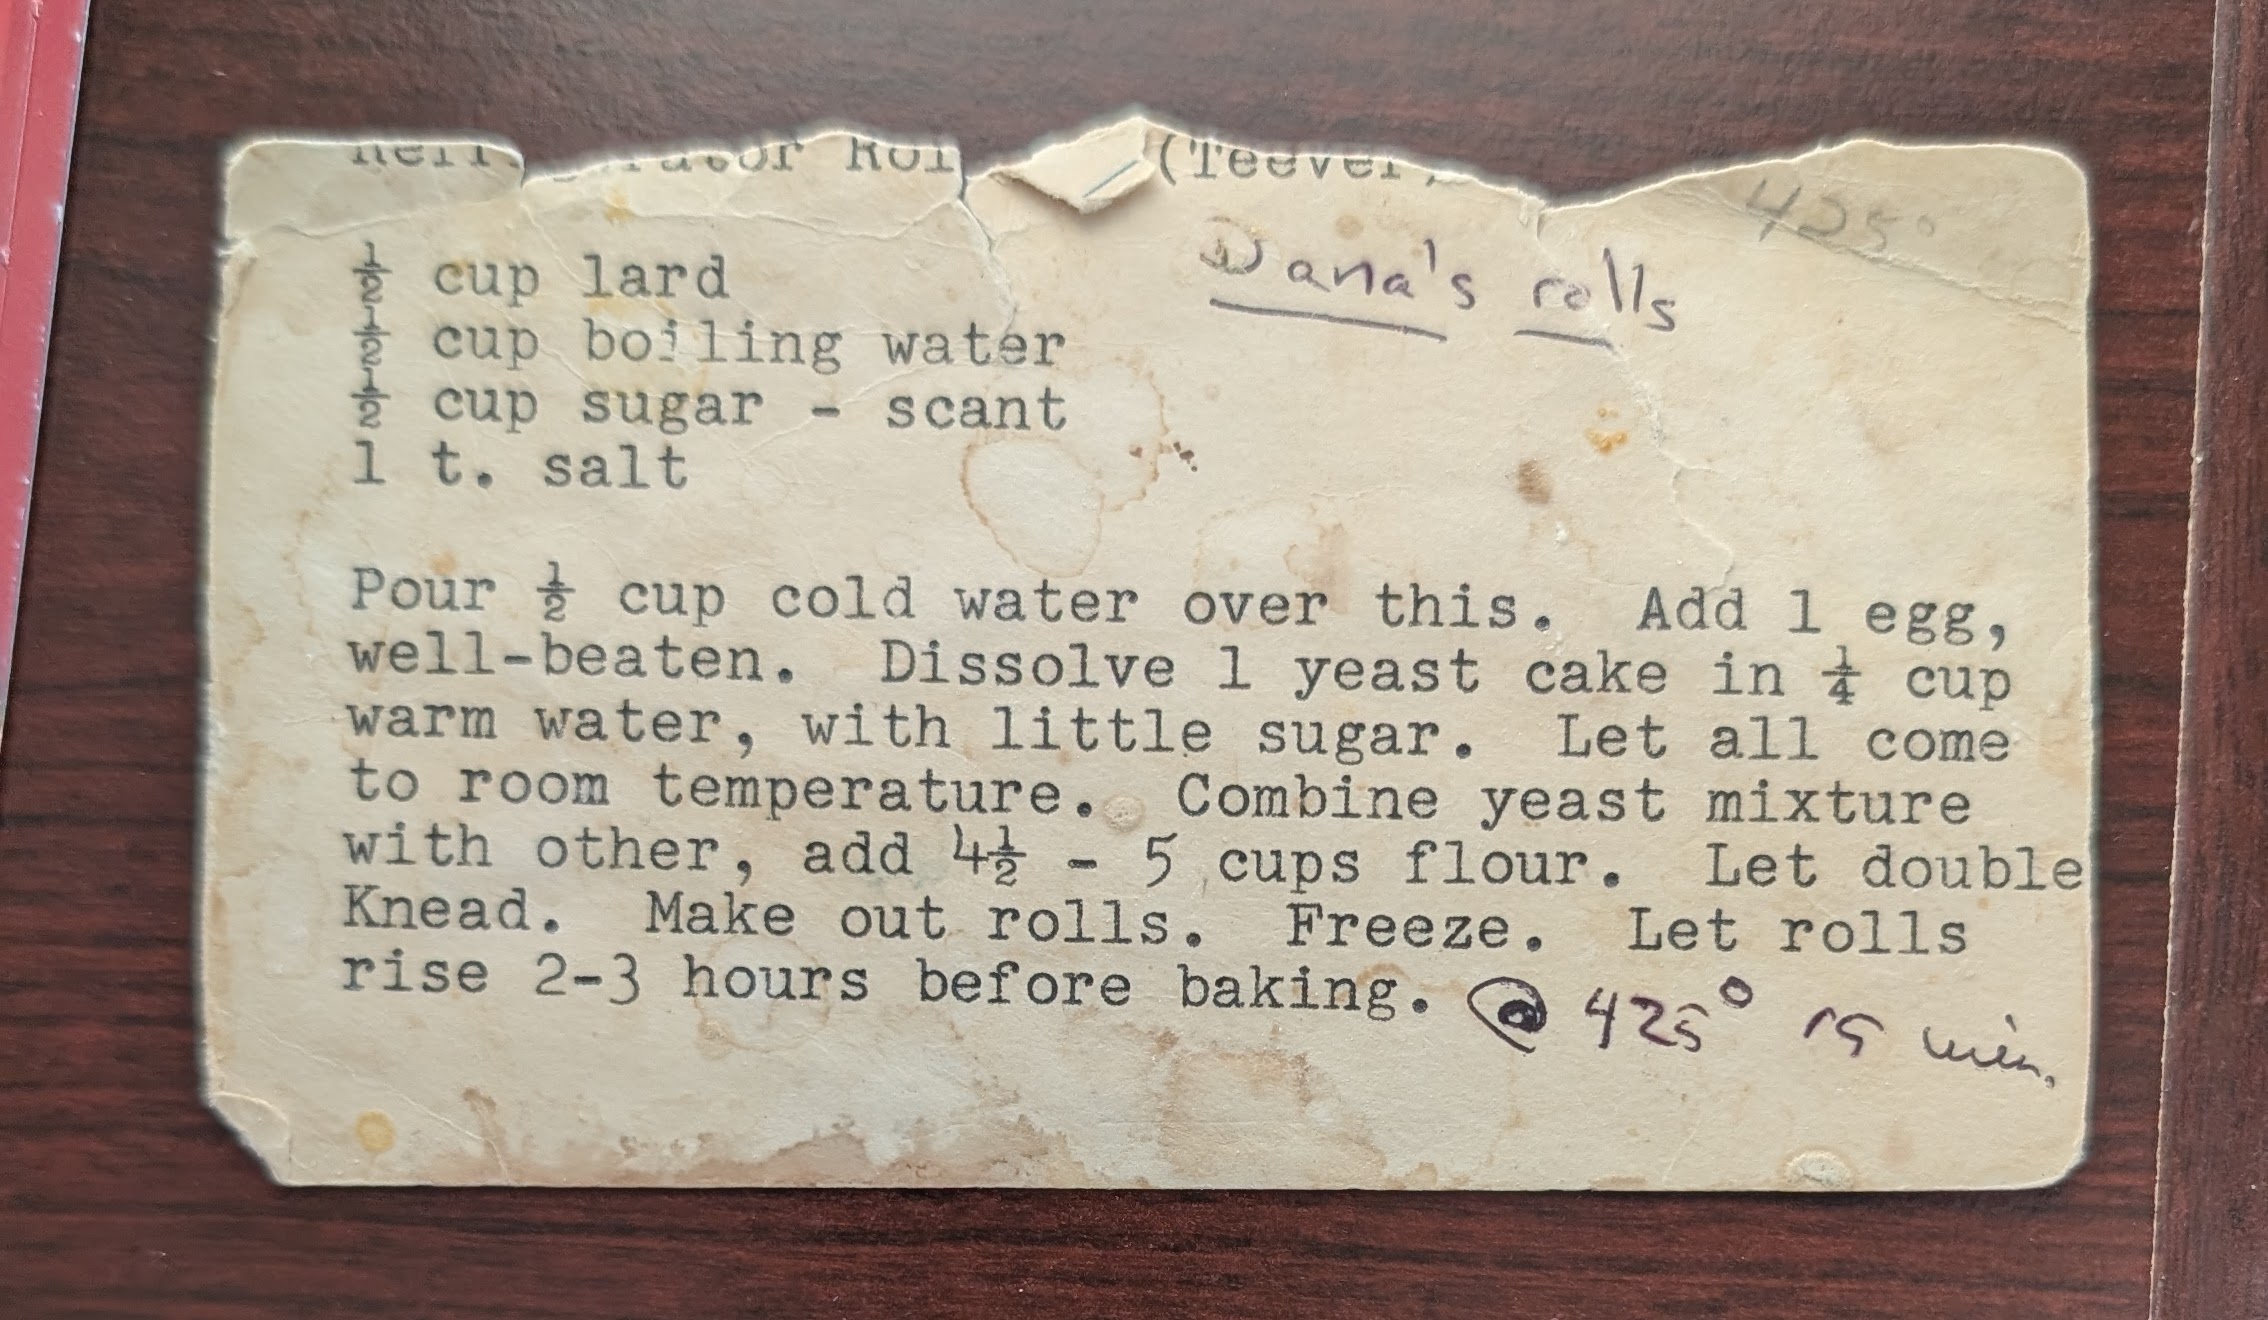 (Teever,
425°
Dana's rolls
½ cup lard
½ cup boiling water
½ cup sugar - scant
1 t. salt
Pour ½ cup cold water over this. Add 1 egg,
well-beaten. Dissolve 1 yeast cake in ¼ cup
warm water, with little sugar. Let all come
to room temperature. Combine yeast mixture
with other, add 4½ - 5 cups flour. Let double
Knead. Make out rolls. Freeze. Let rolls
rise 2-3 hours before baking. @ 425° 15 min.